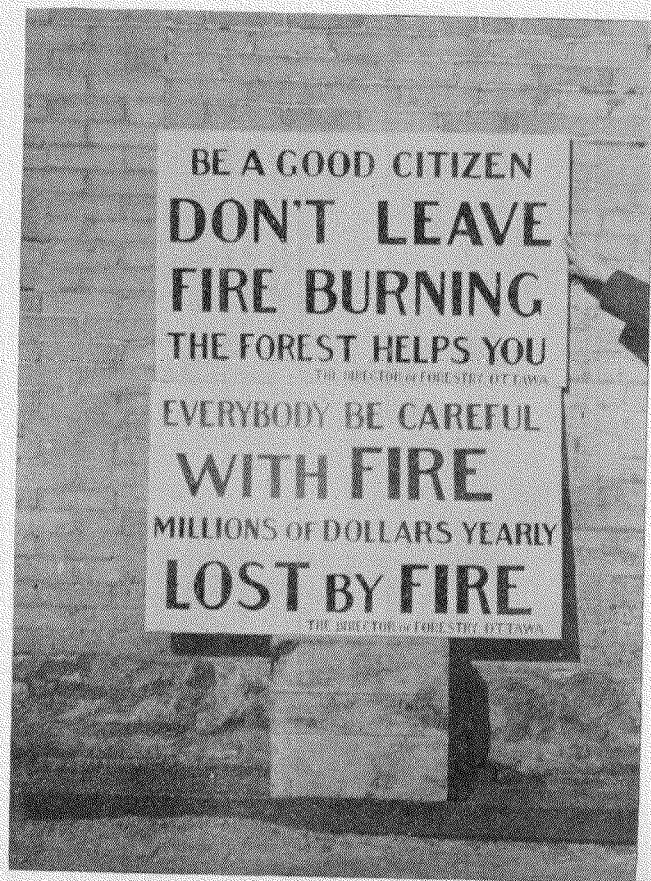 BE A GOOD CITIZEN
DON'T LEAVE
FIRE BURNING
THE FOREST HELPS YOU
THE DIRECTOR OF FORESTRY OTTAWA
EVERYBODY BE CAREFUL
WITH FIRE
MILLIONS OF DOLLARS YEARLY
LOST BY FIRE
THE DIRECTOR OF FORESTRY OTTAWA